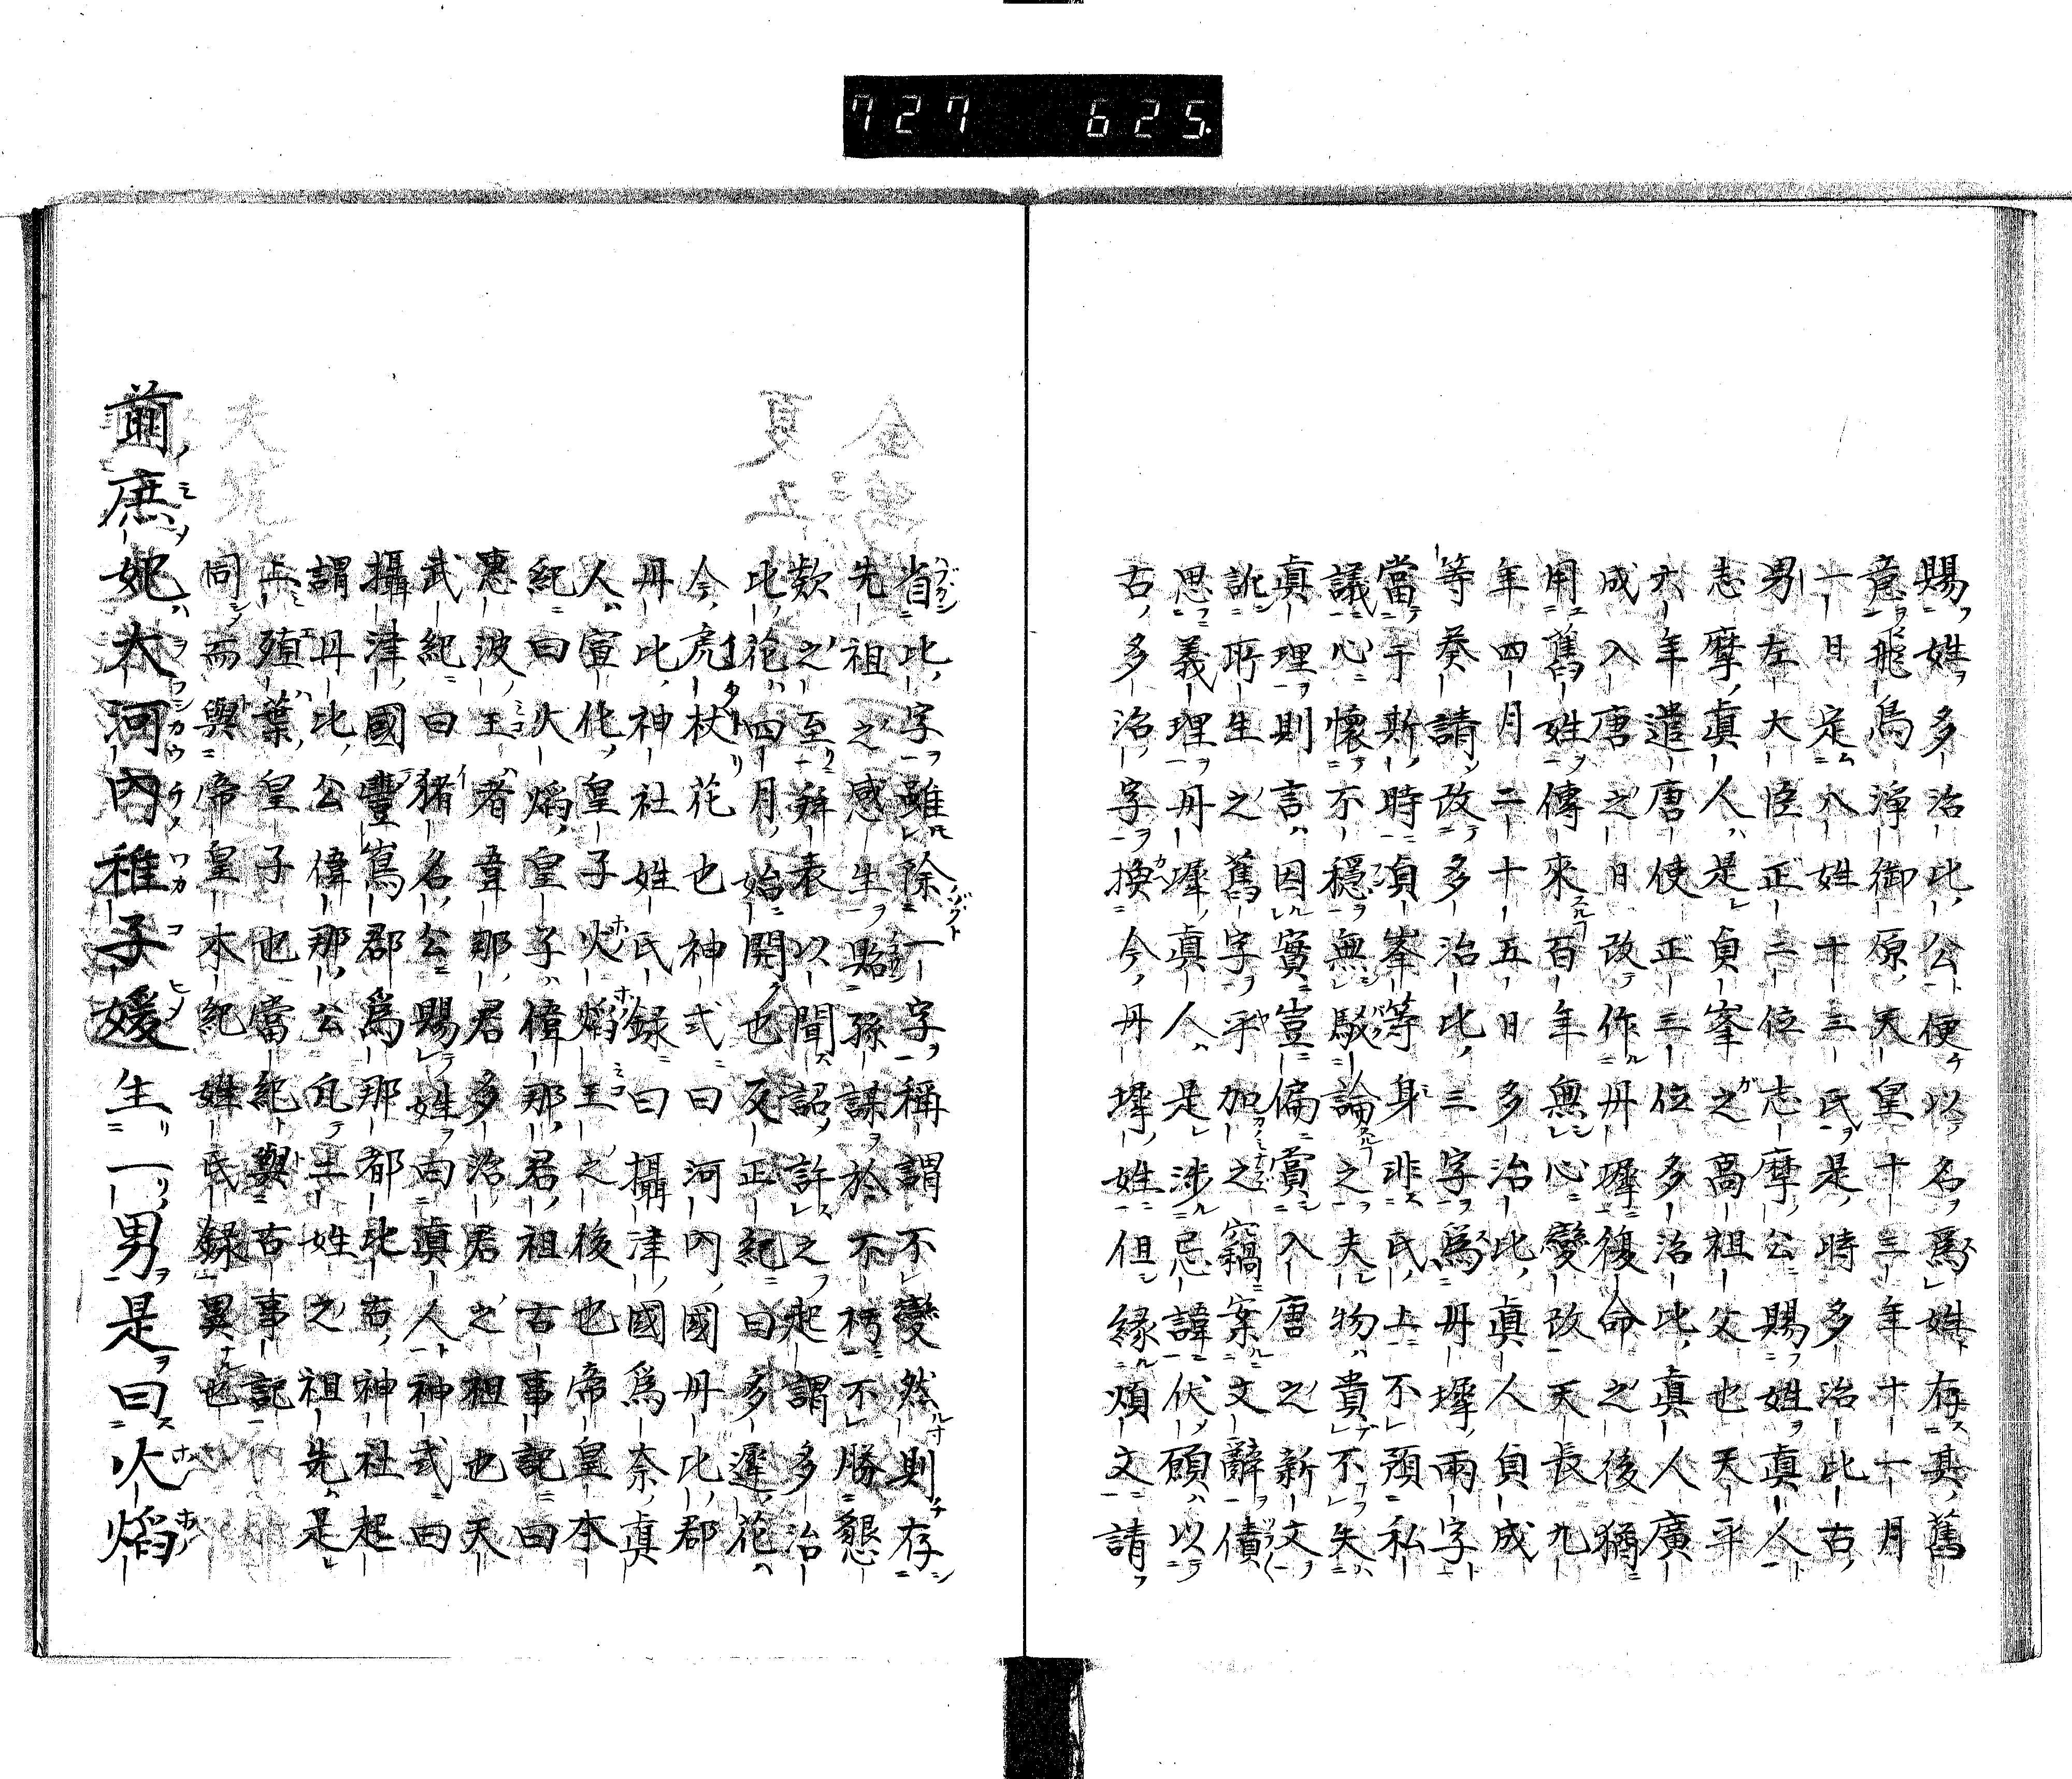 727 625.
賜姓多治比公便以名爲姓存其舊
意飛鳥淨御原天皇十三年十一月
一日定八姓十三氏是時多治比古
男左大臣正二位志摩公賜姓眞人
志摩眞人是貞峯之高祖父也天平
六年遣唐使正三位多治比眞人廣
成入唐之日改作丹墀復命之後猶
用舊姓傳來百年無心變改天長九
年四月二十五日多治比眞人貞成
等奏請改多治比三字爲丹墀兩字
當于斯時貞峯等身非氏上不預私
議心懷不穩無駁論之夫物貴不失
眞理則言因實豈偏賞入唐之新文
訛所生之舊字乎加之竊案文辭債
思義理丹墀眞人是涉忌諱伏願以
古多治字換今丹墀姓但緣煩文請
省比字雖除一字稱謂不變然則存
先祖之感生點孫謀於不朽不勝懇
欵之至拜表以聞詔許之起謂多治
比花四月始開也反正紀曰多遲花
今虎杖花也神式曰河內國丹比郡
丹比神社姓氏録曰攝津國爲奈眞
人宣化皇子火焰王之後也帝皇本
紀曰火焰皇子偉那君祖古事記曰
惠波王者韋那君多治君之祖也天
武紀曰猪名公賜姓曰眞人神式曰
攝津國豐嶌郡爲那都比古神社起
謂丹比公偉那公凡二姓之祖先是
上殖葉皇子也當紀與古事記
同而與帝皇本紀姓氏録異也
前庶妃大河內稚子媛生一男是曰火焰